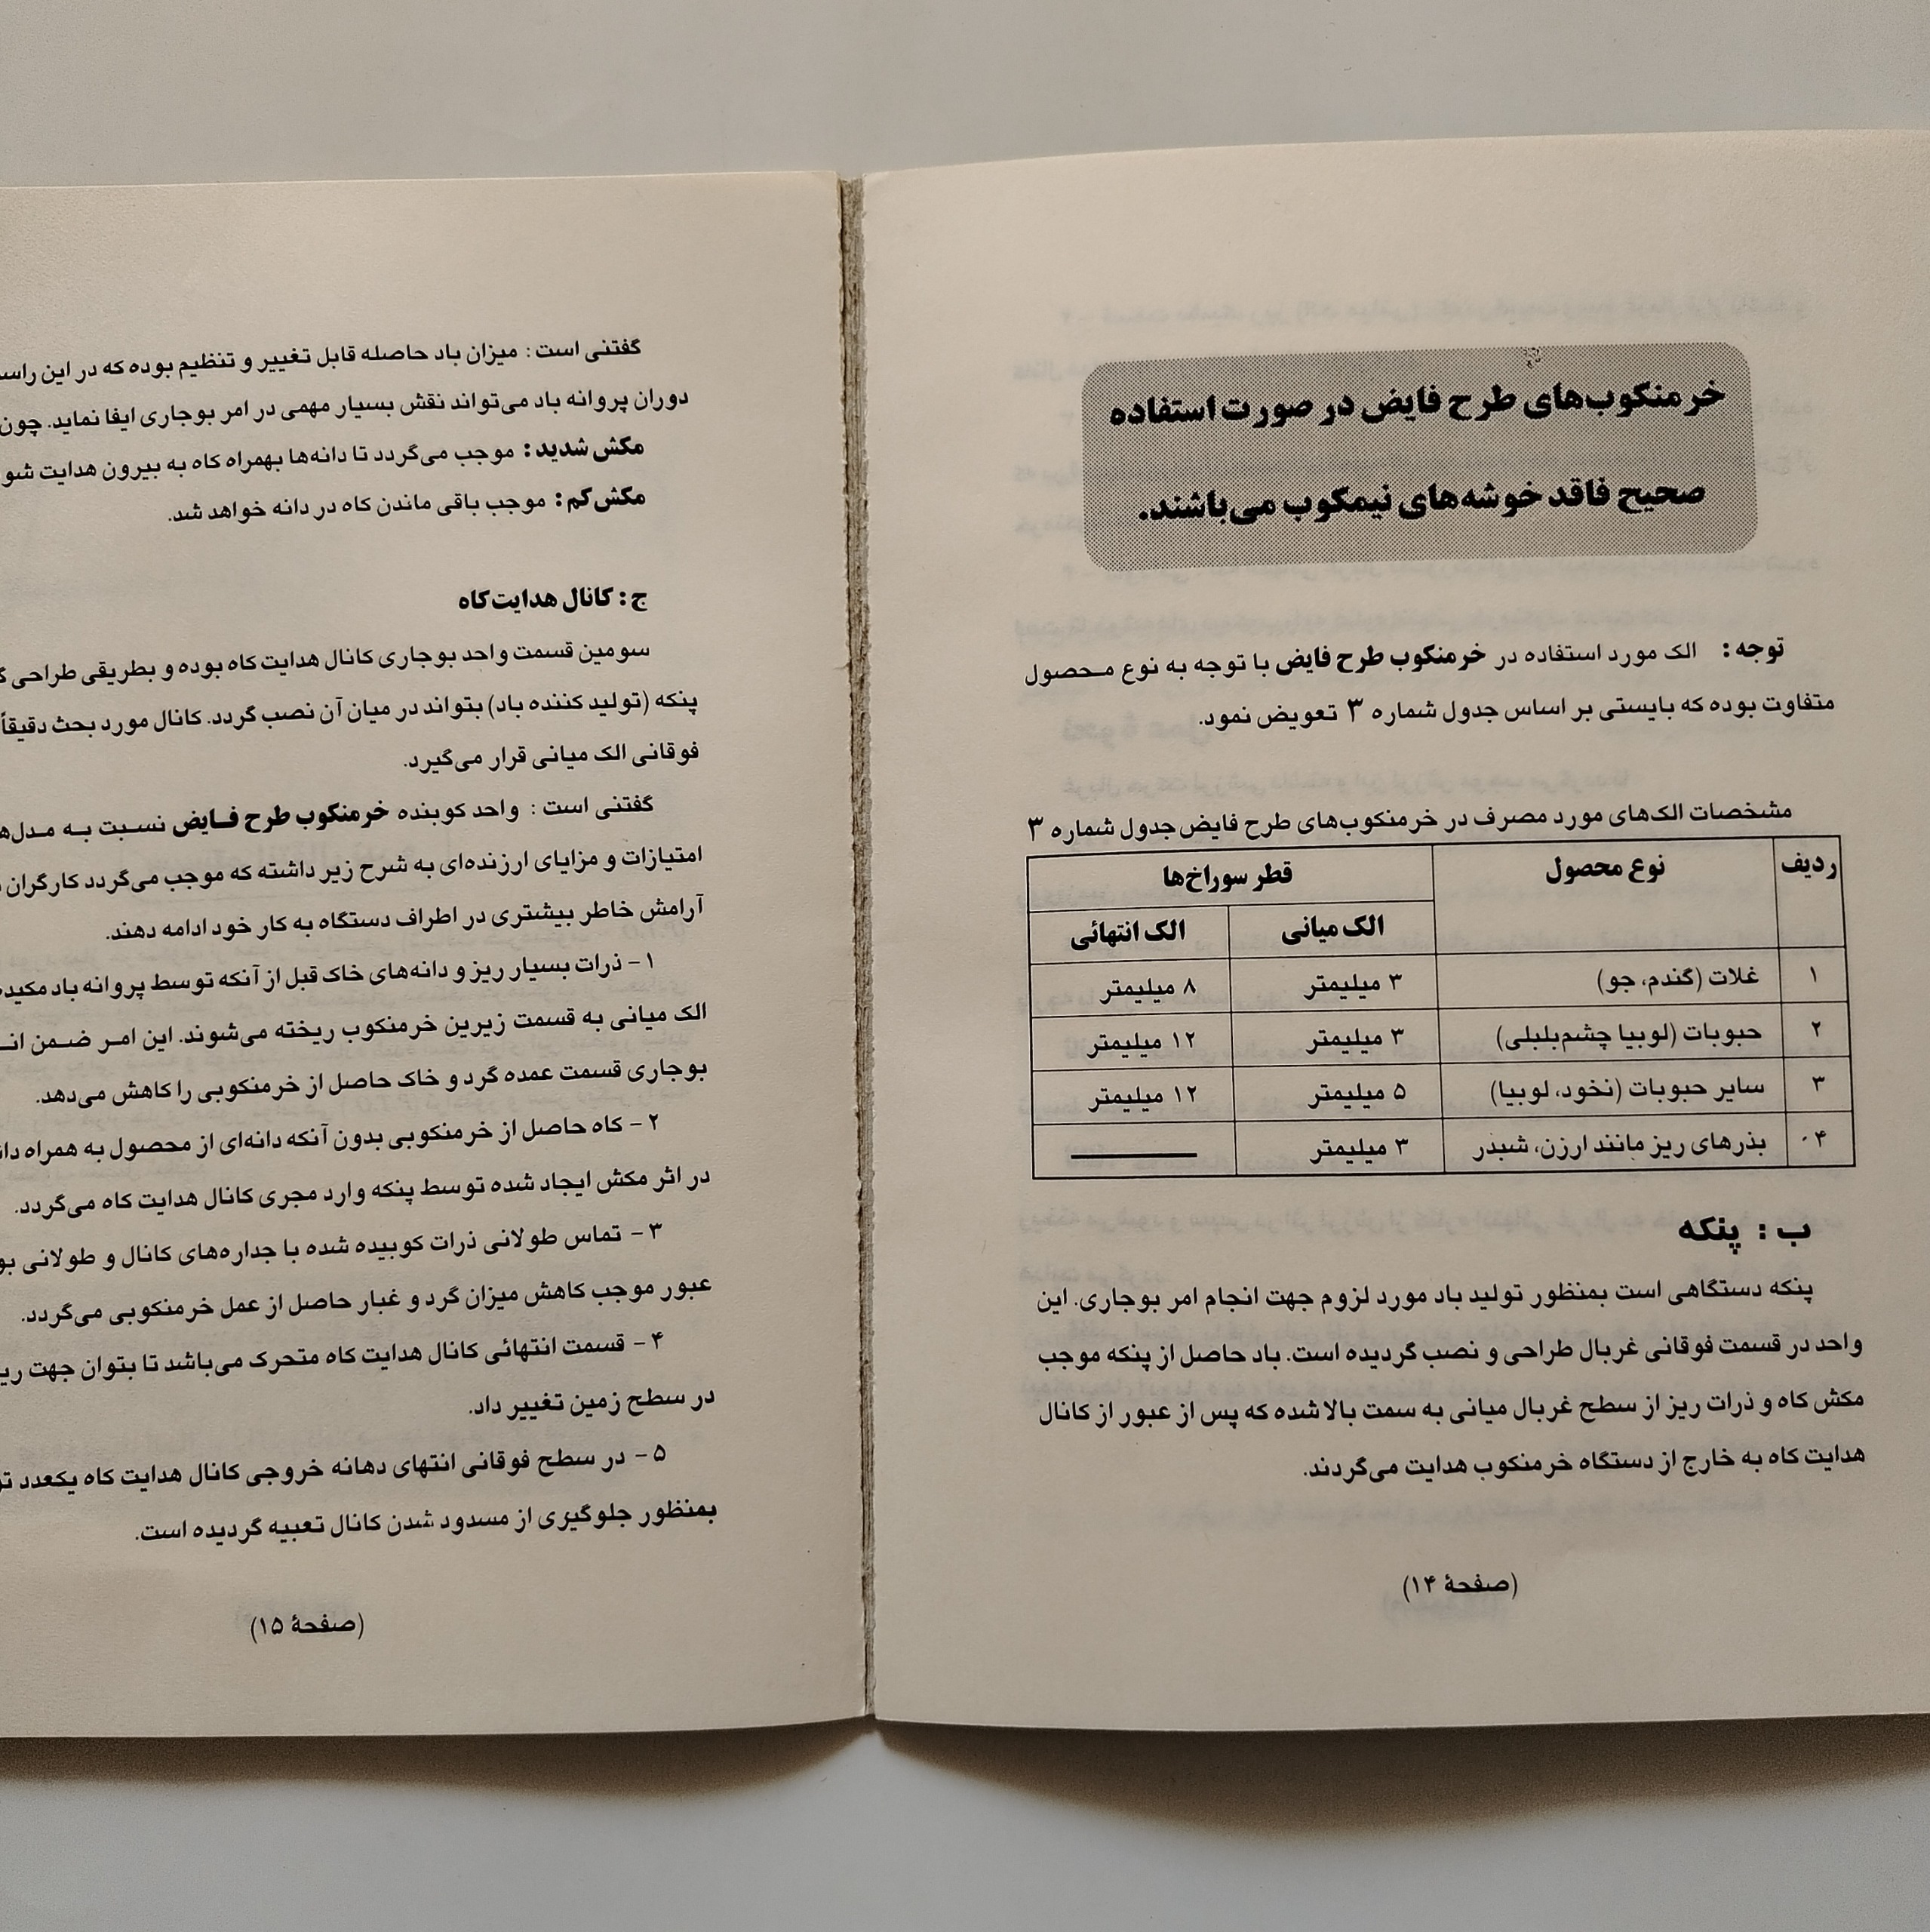 خرمنکوب‌های طرح فایض در صورت استفاده
صحیح فاقد خوشه‌های نیمکوب می‌باشند.
توجه : الک مورد استفاده در خرمنکوب طرح فایض با توجه به نوع محصول
متفاوت بوده که بایستی بر اساس جدول شماره ۳ تعویض نمود.
مشخصات الک‌های مورد مصرف در خرمنکوب‌های طرح فایض جدول شماره ۳
ردیف نوع محصول قطر سوراخ‌ها
الک میانی الک انتهائی
۱ غلات (گندم، جو) ۳ میلیمتر ۸ میلیمتر
۲ حبوبات (لوبیا چشم‌بلبلی) ۳ میلیمتر ۱۲ میلیمتر
۳ سایر حبوبات (نخود، لوبیا) ۵ میلیمتر ۱۲ میلیمتر
۴ بذرهای ریز مانند ارزن، شبدر ۳ میلیمتر ـــــــــ
ب : پنکه
پنکه دستگاهی است بمنظور تولید باد مورد لزوم جهت انجام امر بوجاری. این
واحد در قسمت فوقانی غربال طراحی و نصب گردیده است. باد حاصل از پنکه موجب
مکش کاه و ذرات ریز از سطح غربال میانی به سمت بالا شده که پس از عبور از کانال
هدایت کاه به خارج از دستگاه خرمنکوب هدایت می‌گردند.
(صفحهٔ ۱۴)
گفتنی است : میزان باد حاصله قابل تغییر و تنظیم بوده که در این
دوران پروانه باد می‌تواند نقش بسیار مهمی در امر بوجاری ایفا نماید. چون
مکش شدید : موجب می‌گردد تا دانه‌ها بهمراه کاه به بیرون هدایت
مکش کم : موجب باقی ماندن کاه در دانه خواهد شد.
ج : کانال هدایت کاه
سومین قسمت واحد بوجاری کانال هدایت کاه بوده و بطریقی طراحی
پنکه (تولید کننده باد) بتواند در میان آن نصب گردد. کانال مورد بحث دقیقاً
فوقانی الک میانی قرار می‌گیرد.
گفتنی است : واحد کوبنده خرمنکوب طرح فایض نسبت به
امتیازات و مزایای ارزنده‌ای به شرح زیر داشته که موجب می‌گردد کارگران
آرامش خاطر بیشتری در اطراف دستگاه به کار خود ادامه دهند.
۱ - ذرات بسیار ریز و دانه‌های خاک قبل از آنکه توسط پروانه باد
الک میانی به قسمت زیرین خرمنکوب ریخته می‌شوند. این امر ضمن
بوجاری قسمت عمده گرد و خاک حاصل از خرمنکوبی را کاهش می‌دهد.
۲ - کاه حاصل از خرمنکوبی بدون آنکه دانه‌ای از محصول به همراه
در اثر مکش ایجاد شده توسط پنکه وارد مجری کانال هدایت کاه می‌گردد.
۳ - تماس طولانی ذرات کوبیده شده با جداره‌های کانال و طولانی
عبور موجب کاهش میزان گرد و غبار حاصل از عمل خرمنکوبی می‌گردد.
۴ - قسمت انتهائی کانال هدایت کاه متحرک می‌باشد تا بتوان جهت
در سطح زمین تغییر داد.
۵ - در سطح فوقانی انتهای دهانه خروجی کانال هدایت کاه یکعدد
بمنظور جلوگیری از مسدود شدن کانال تعبیه گردیده است.
(صفحهٔ ۱۵)